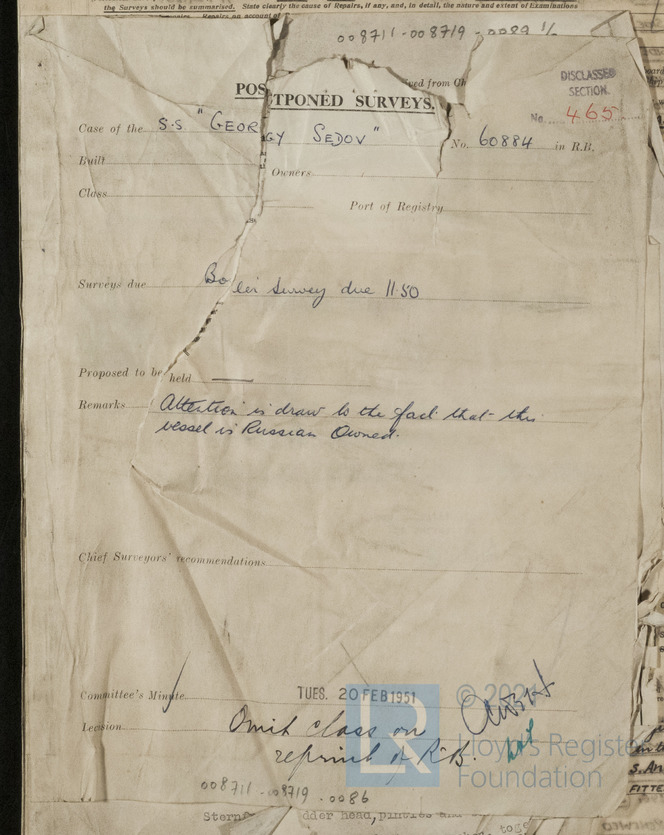 the Surveys should be summarised. State clearly the cause of Repairs, if any, and, in detail, the nature and extent of Examinations
Repairs on account of
008711-008719-0089 1/
DISCLASSED
SECTION.
POSTPONED SURVEYS.
No. 465
Case of the S.S "GEORGY SEDOV" No. 60884 in R.B.
Built Owners
Class Port of Registry
Surveys due Boiler Survey due 11.50
Proposed to be held —
Remarks Attention is draw to the fact that this
vessel is Russian Owned.
Chief Surveyors' recommendations
Committee's Minute TUES. 20 FEB 1951
© 2021
Decision Omit class on
reprint of R.B.
Lloyd's Register
Foundation
LR
008711-008719-0086